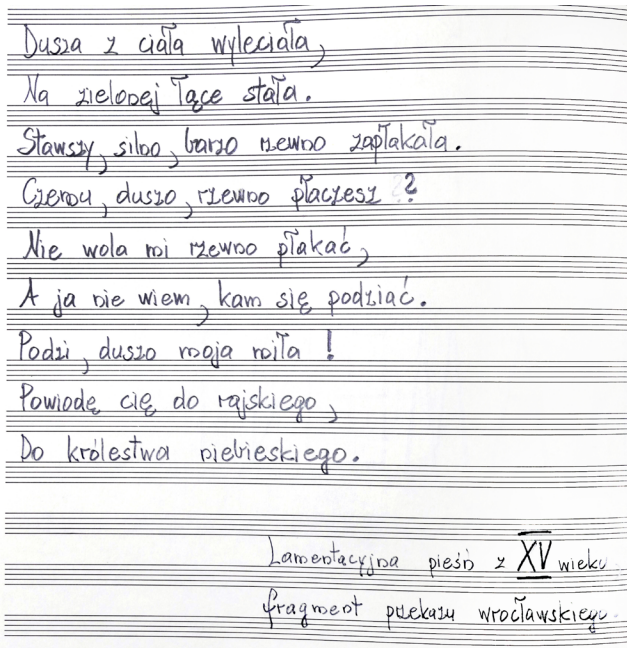 Dusza z ciała wyleciała,
Na zielonej łące stała.
Stawszy, silno, barzo rzewno zapłakała.
Czemu, duszo, rzewno płaczesz?
Nie wola mi rzewno płakać,
A ja nie wiem, kam się podziać.
Podzi, duszo moja miła!
Powiodę cię do rajskiego,
Do królestwa niebieskiego.
Lamentacyjna pieśń z XV wieku
fragment przekazu wrocławskiego.